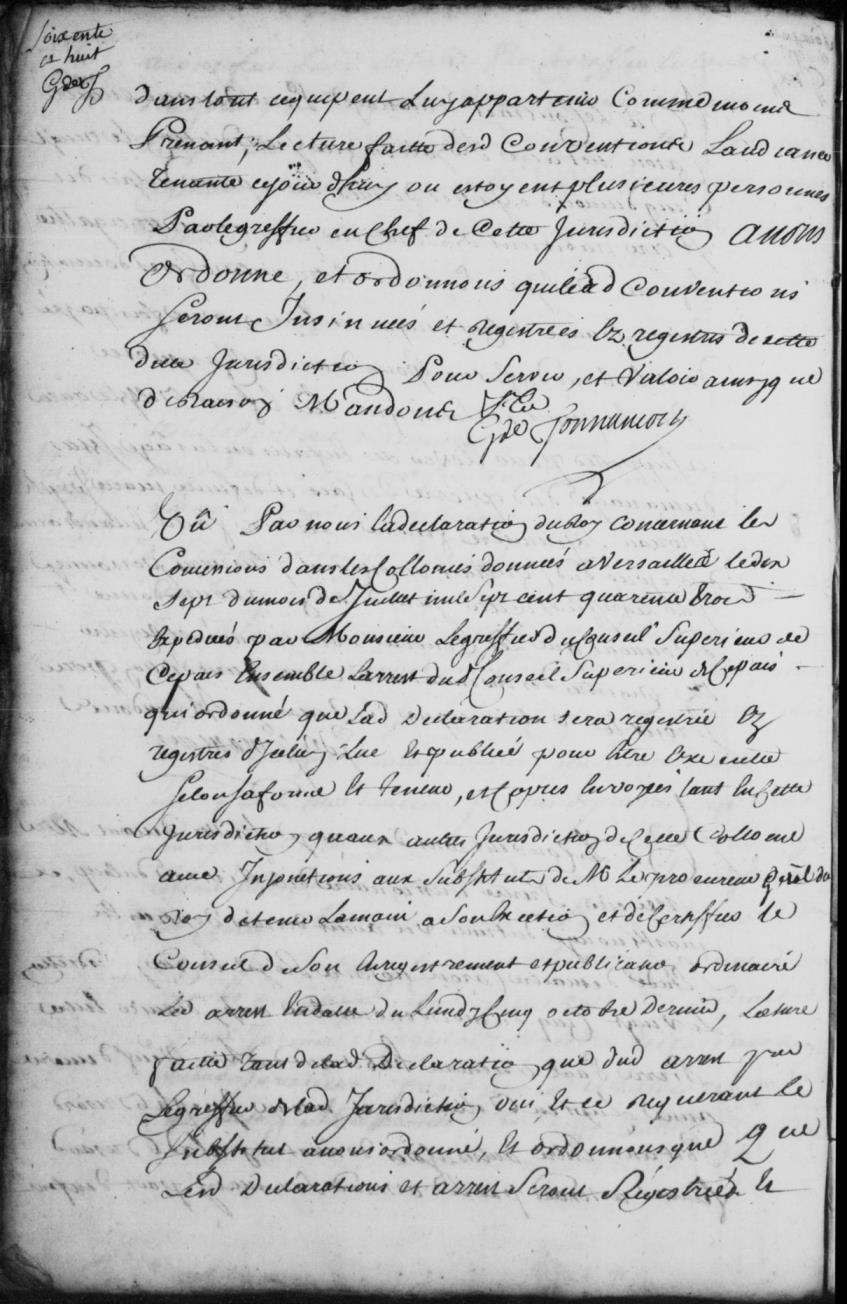 Soixente
et huit
GdeT
dans tout ce qui peut Luy appartenir Comme mome
Prenant; Lecture faitte desd Conventions Laudiance
tenante cejourdhuy ou estoyent plusieures personnes
Par le greffier en Chef de Cette Jurisdiction avons
Ordonne, et ordonnons que lesd Conventions
Seront Insinuées et registrées Ez registres de cette
ditte Jurisdiction Pour Servir, et Valoir ainsy que
de raison Mandons &ca
Gde Tonnancour
Vû Par nous la declaration du Roy concernant les
Concessions dans les Collonies données a Versailles le dix
Sept du mois de Juillet mil Sept cent quarente trois
Expediés par Monsieur Le greffier du Conseil Superieur de
Ce pais Ensemble Larrest dud Conseil Superieur de Ce pais
qui ordonné que Lad Declaration sera registrée Ez
registres d'Iceluy, lue Et publiée pour Etre Executée
Selon sa forme Et teneur, et Copies Envoyées tant En Cette
Jurisdiction quaux autres Jurisdictions de Cette Collonie
avec Injonctions aux Substituts de Mr Le procureur general du
roy de tenir Lamain a Son Execution et de Certiffier le
Conseil de Son Enregistrement et publication ordinaire
Led arrest En datte du Lundy Cinq octobre Dernier, Lecture
faitte tant de lad Declaration que dud arrest par
Le greffier de lad Jurisdiction oui, Et ce requerant le
Substitut avons ordonné, Et ordonnons que Que
Lesd Declarations et arrest Seront Régistrées Et